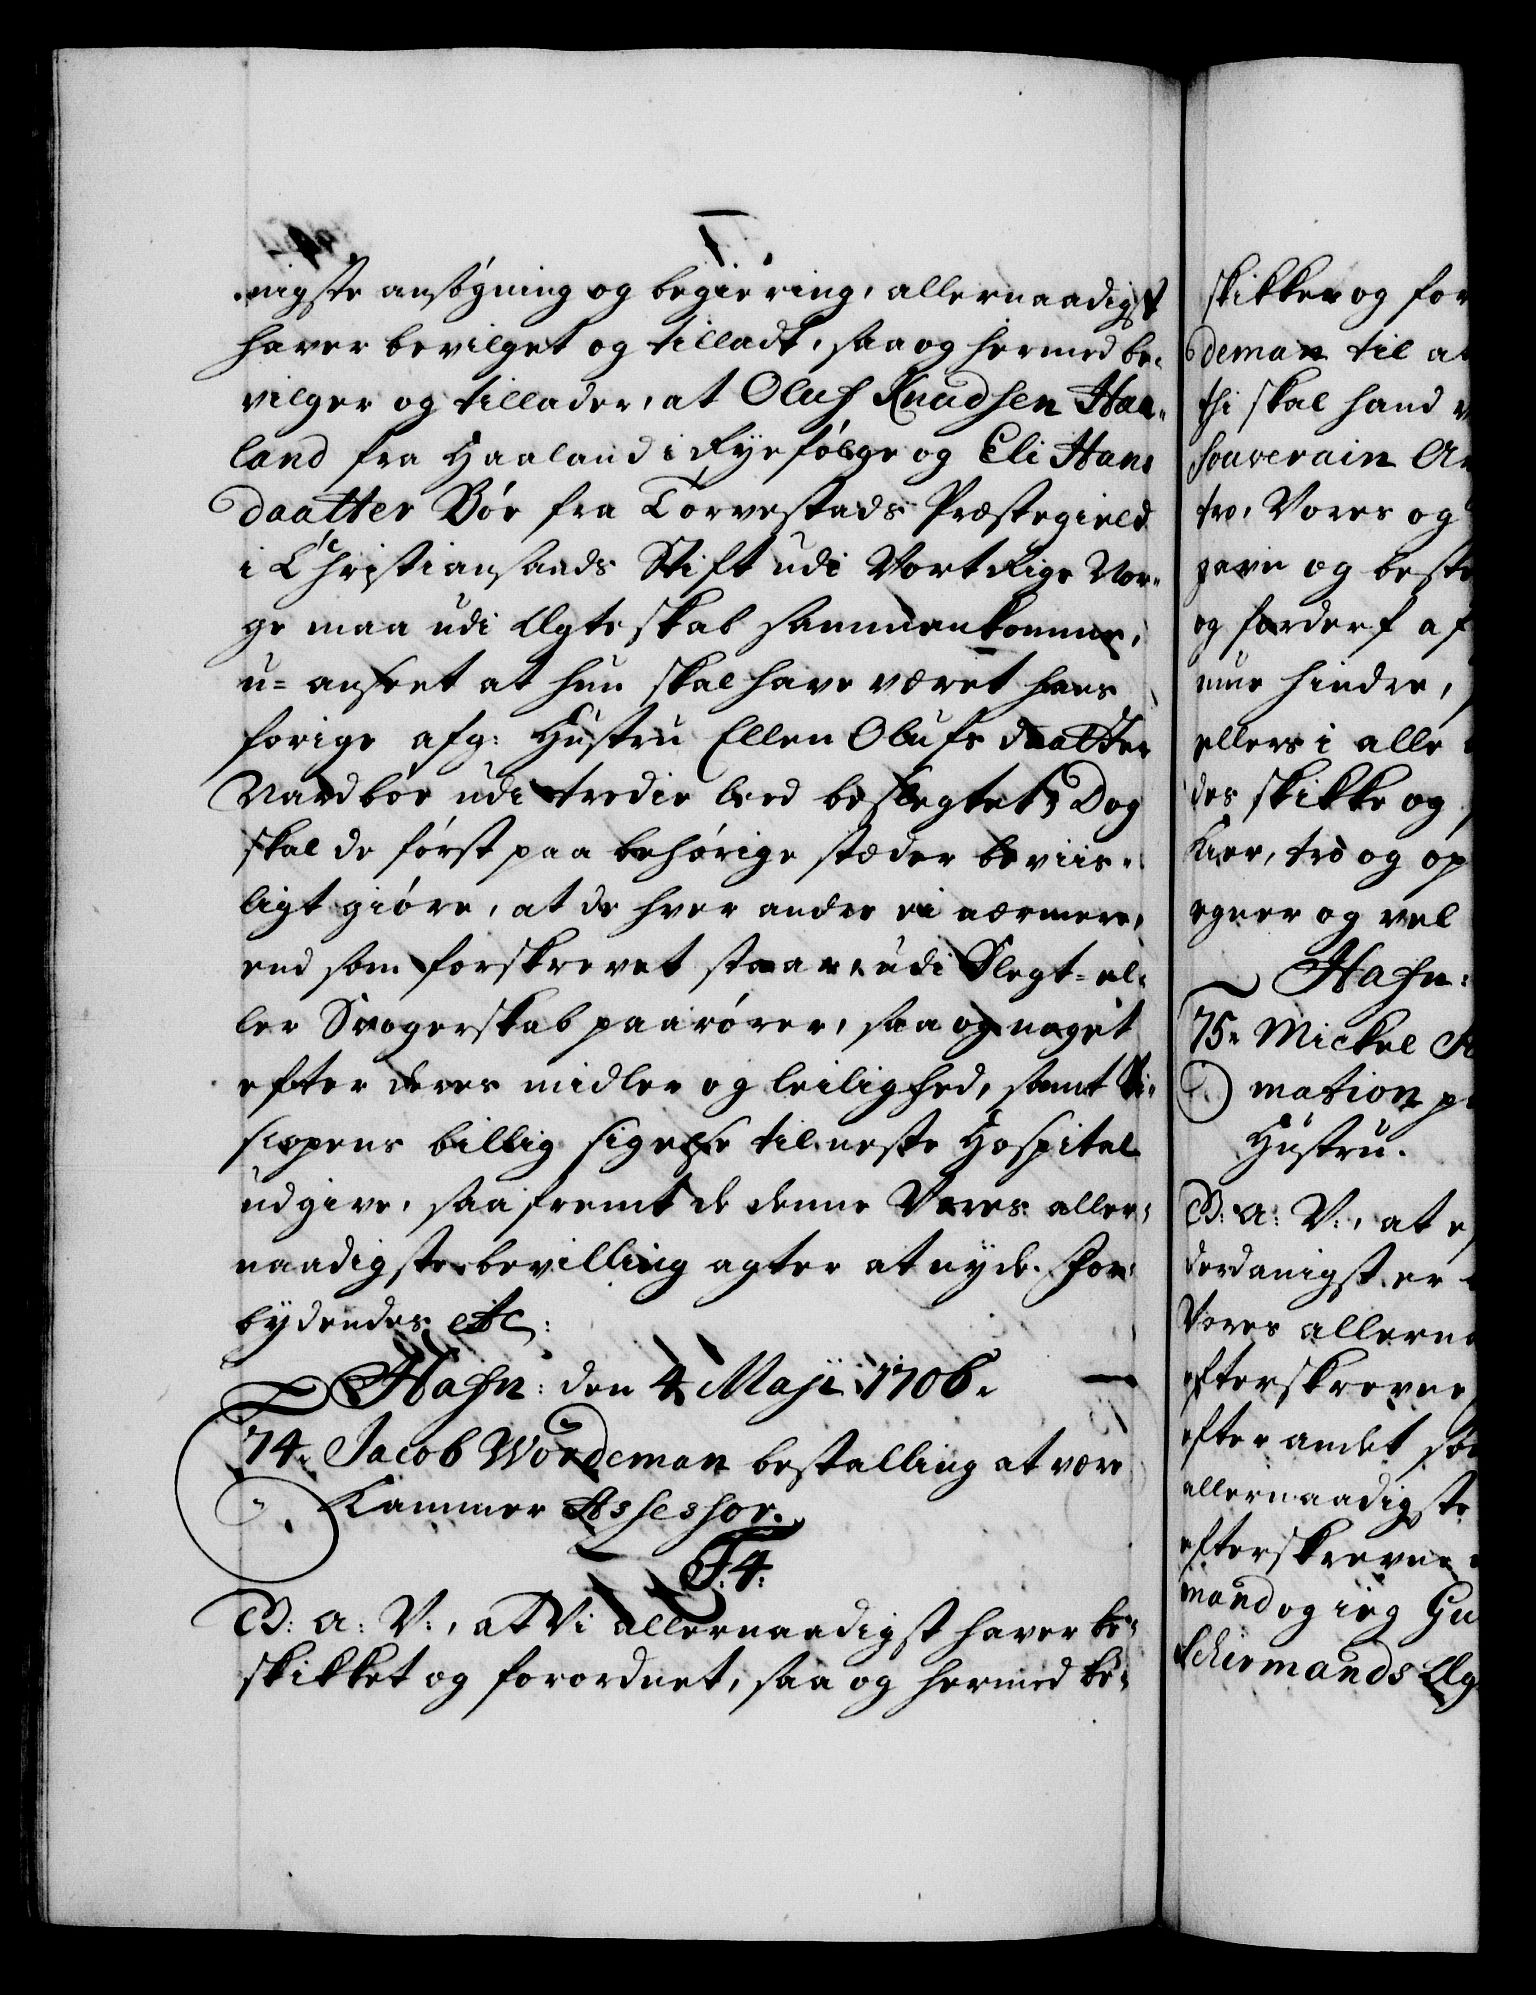 nigste ansøgning og begiering, allernaadigst
haver bevilget og tilladt, saa og hermed be-
vilger og tillader, at Oluf Knudsen Haa-
land fra Haaland i Ryefølge og Eli Hans
daatter Bøe fra Torvestads Præstegield
i Christiansands Stift udi Vort Rige Nor-
ge maa udi Ægteskab sammenkomme,
u=anseet at hun skal have været hans
forige afg: Hustru Ellen Olufs daatter
Nardbøe udi tredie leed beslegtet; Dog
skal de først paa behørige stæder beviis-
ligt giøre, at de hver andre ei nærmere,
end som forskrevet staar, udi Slegt= el-
ler Svogerskab paarører, saa og noget
efter deres midler og leilighed, samt Bi-
scopens billig sigelse til neste Hospital
udgive, saafremt de denne Vores aller-
naadigste bevilling agter at nyde. For-
bydendes etc:
Hafn: den 4 Maji 1706.
74. Jacob Wordeman bestalling at være
Kammer Assessor.
F.4.
G: A: V:, at Vi allernaadigst haver be-
skikket og forordnet, saa og hermed be-
skikker og for
deman til at
thi skal hand
souverain
tro, Vores og
gavn og beste
og forderf af
hindre,
ellers i alle
des skikke og
Kier, tro og op
egner og vel
Hafn:
75. Mickel
mation
Hustru.
G: A: V:, at
derdanigst er
Vores allerna
efterskrevne
efter andet
allernaadigste
efterskrevne
mand og ieg Gu
Schermands Æg